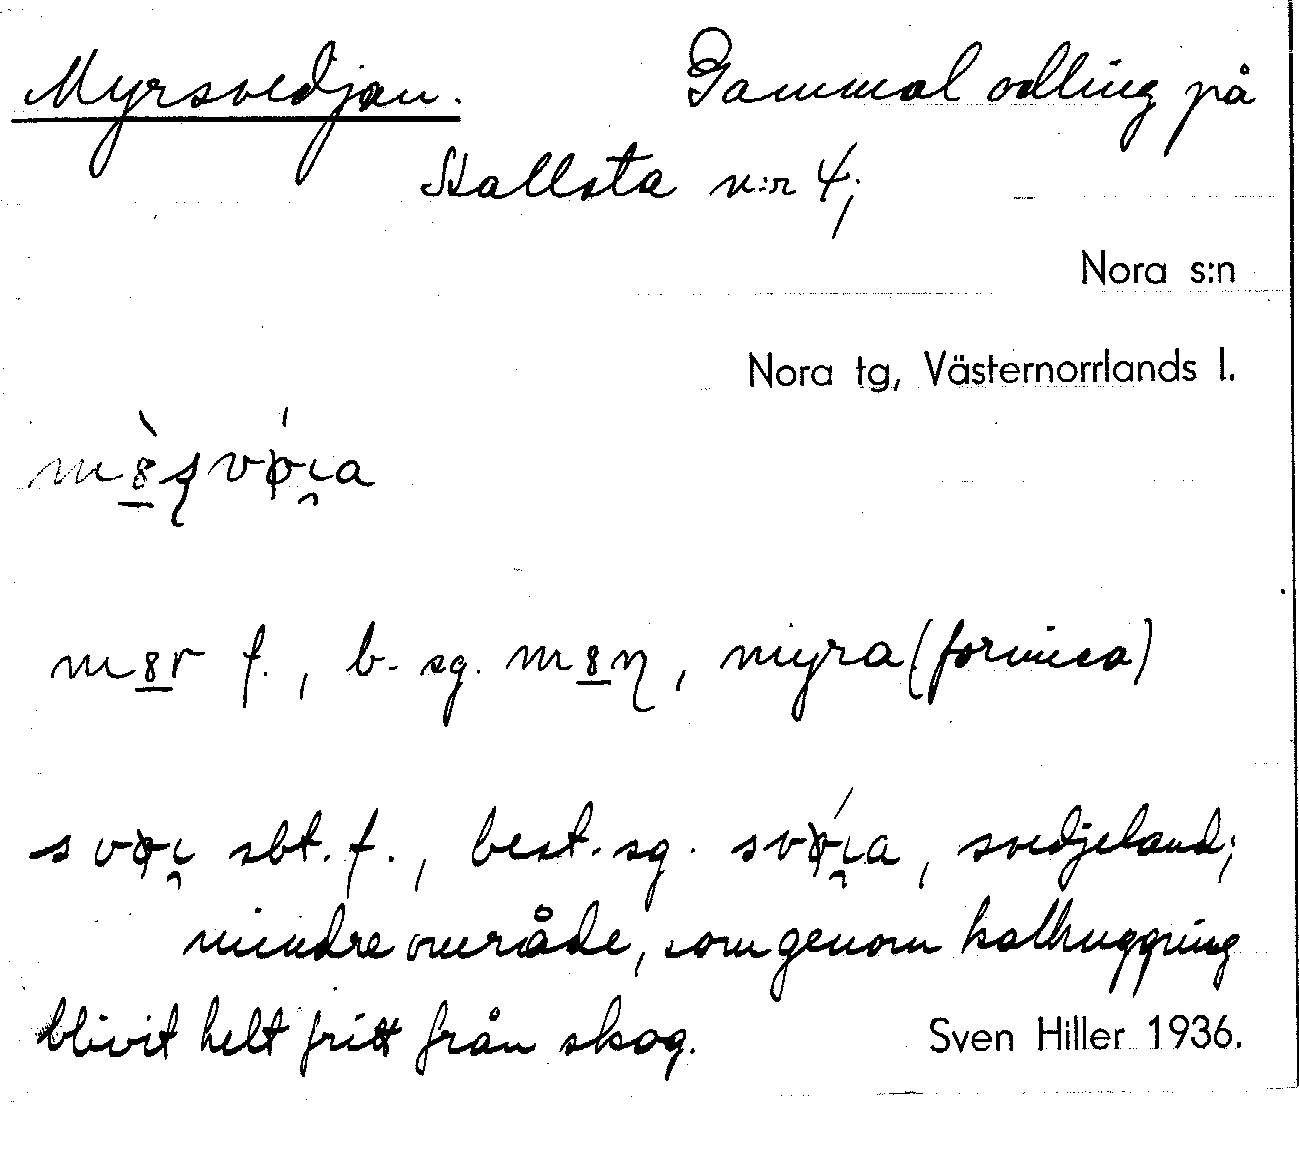 Myrsvedjan. Gammal odling på
Stallsta n:r 4;
Nora s:n
Nora tg, Västernorrlands l.
f., b. sg. , myra (formica)
sbt. f., best. sg. , svedjeland;
mindre område, som genom kalhuggning
blivit helt fritt från skog. Sven Hiller 1936.